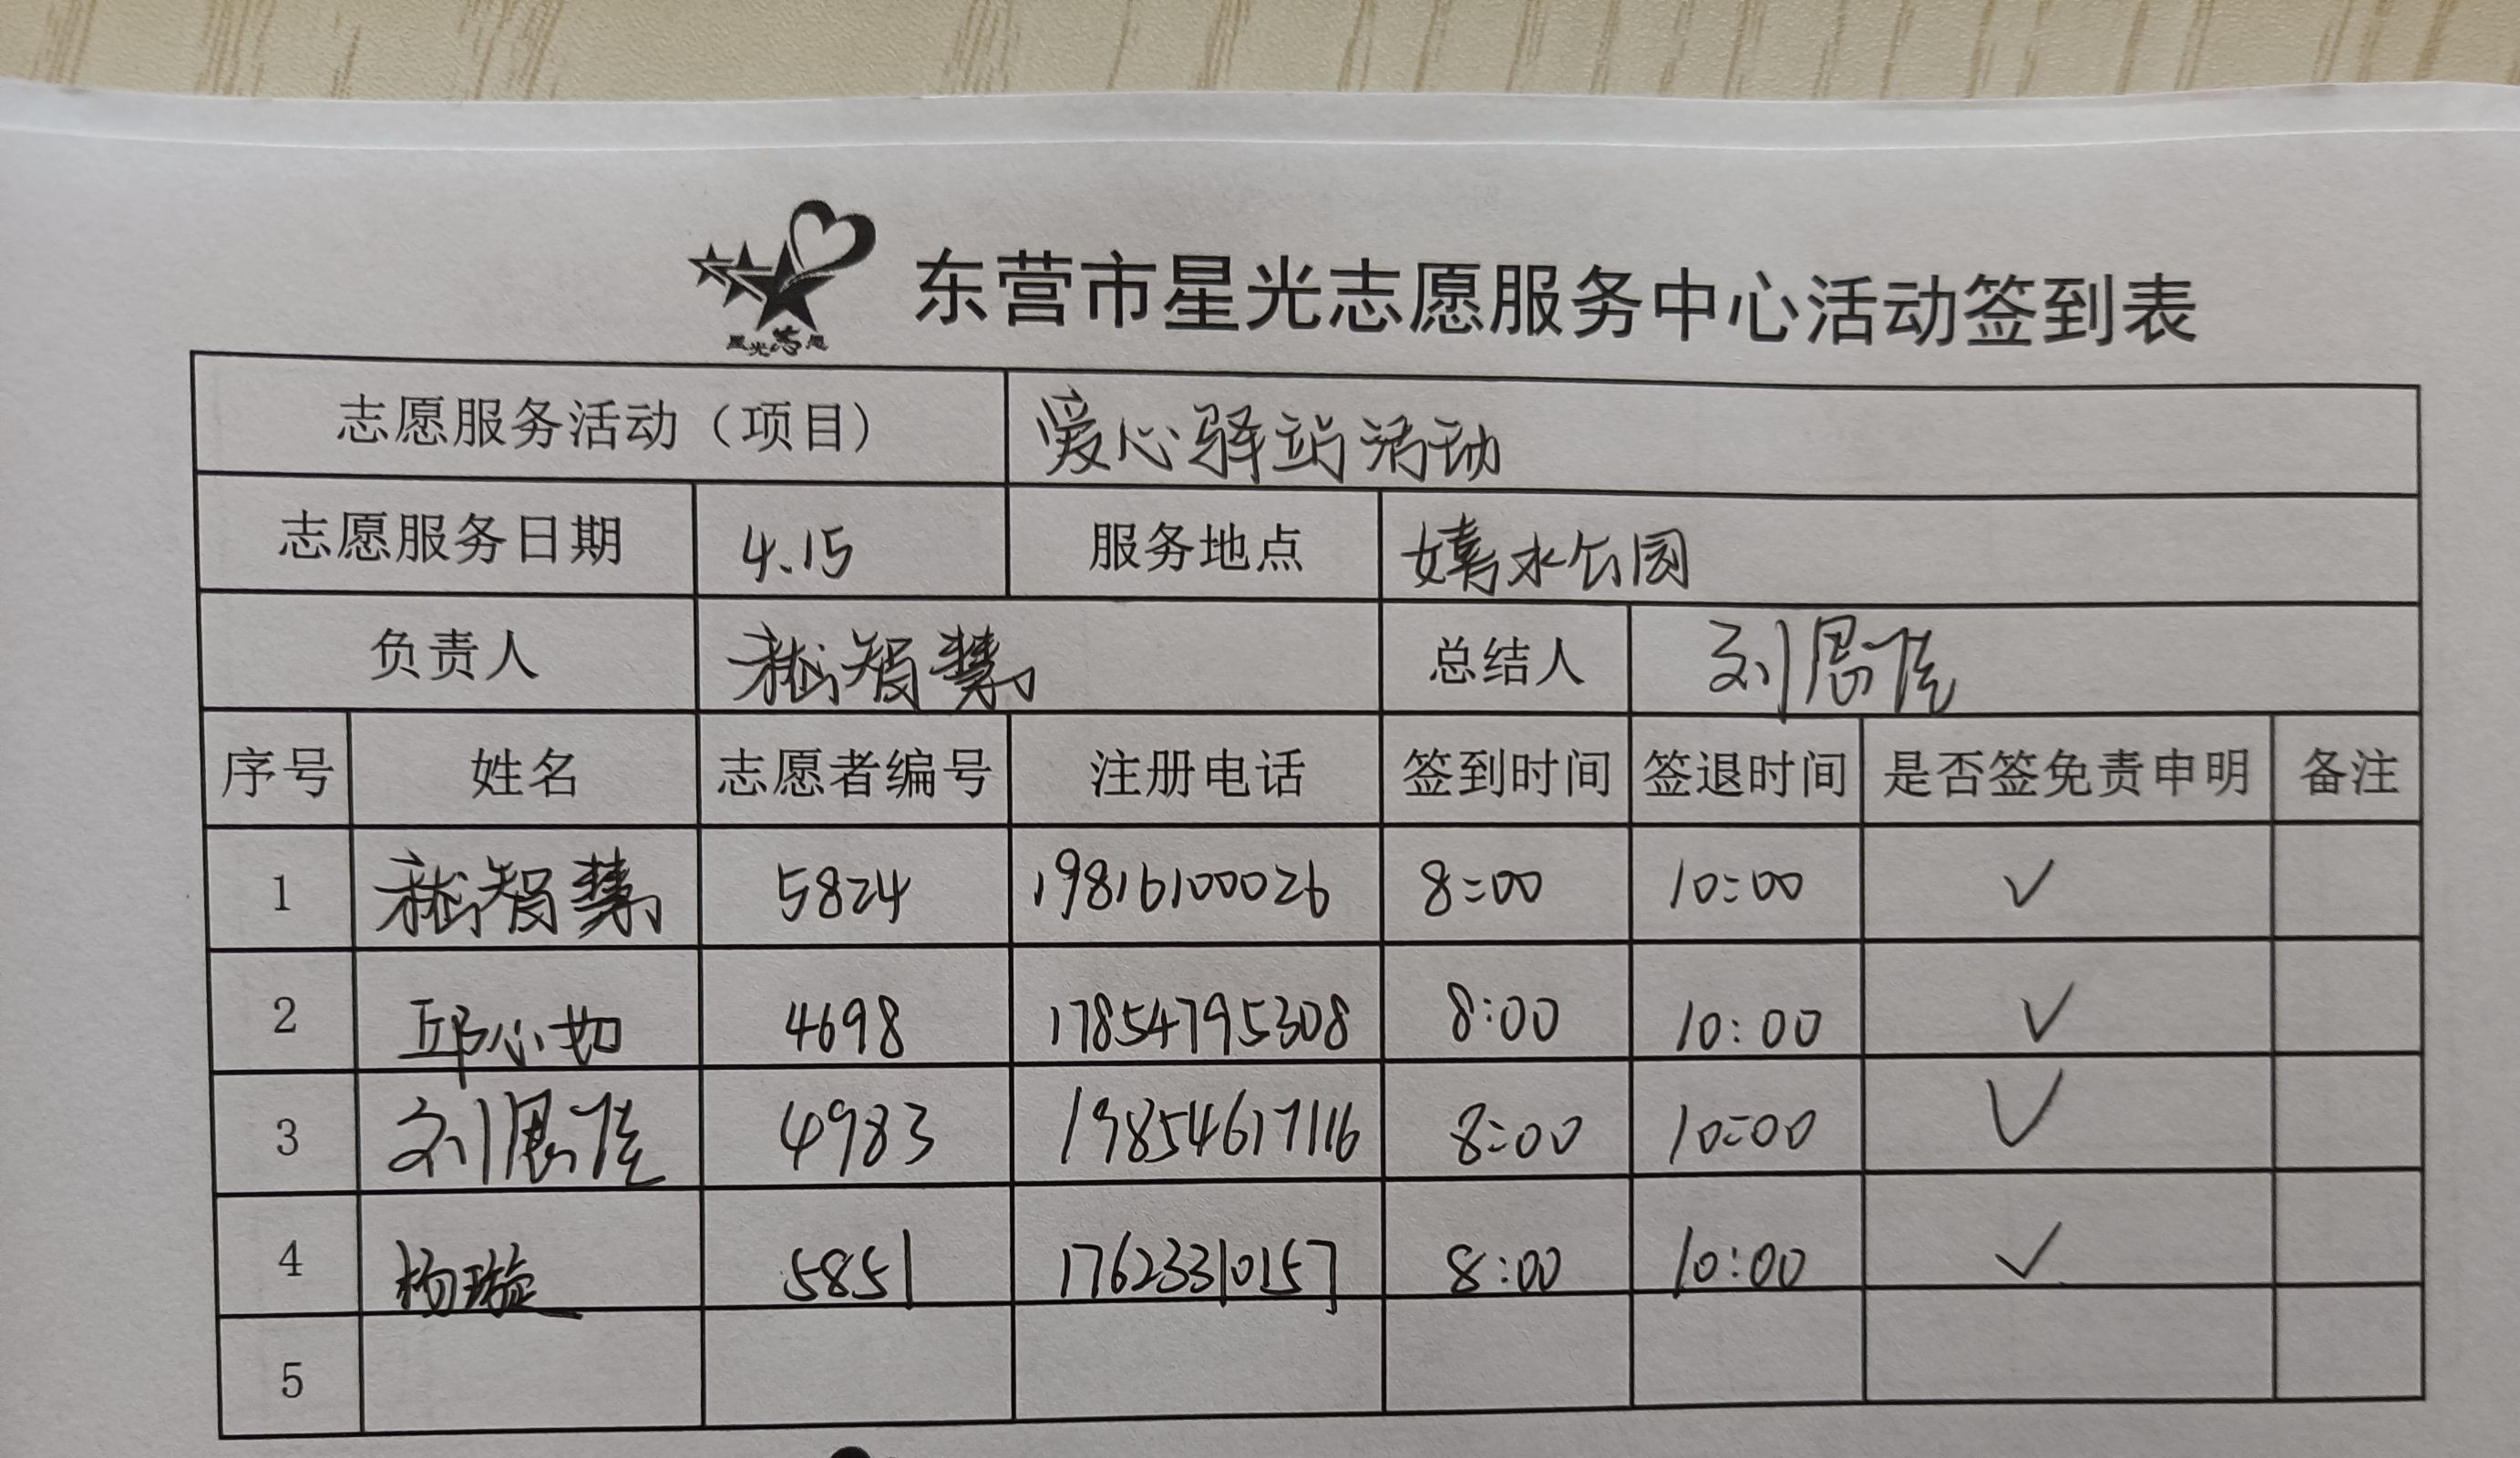 星光志愿
东营市星光志愿服务中心活动签到表
志愿服务活动（项目） 爱心驿站活动
志愿服务日期 4.15 服务地点 嬉水公园
负责人 嵇智慧 总结人 刘恩佳
序号 姓名 志愿者编号 注册电话 签到时间 签退时间 是否签免责申明 备注
1 嵇智慧 5824 19816100026 8:00 10:00 ✓
2 邱心如 4698 17854795308 8:00 10:00 ✓
3 刘恩佳 4983 19854617116 8:00 10:00 ✓
4 杨璇 5851 17623310157 8:00 10:00 ✓
5